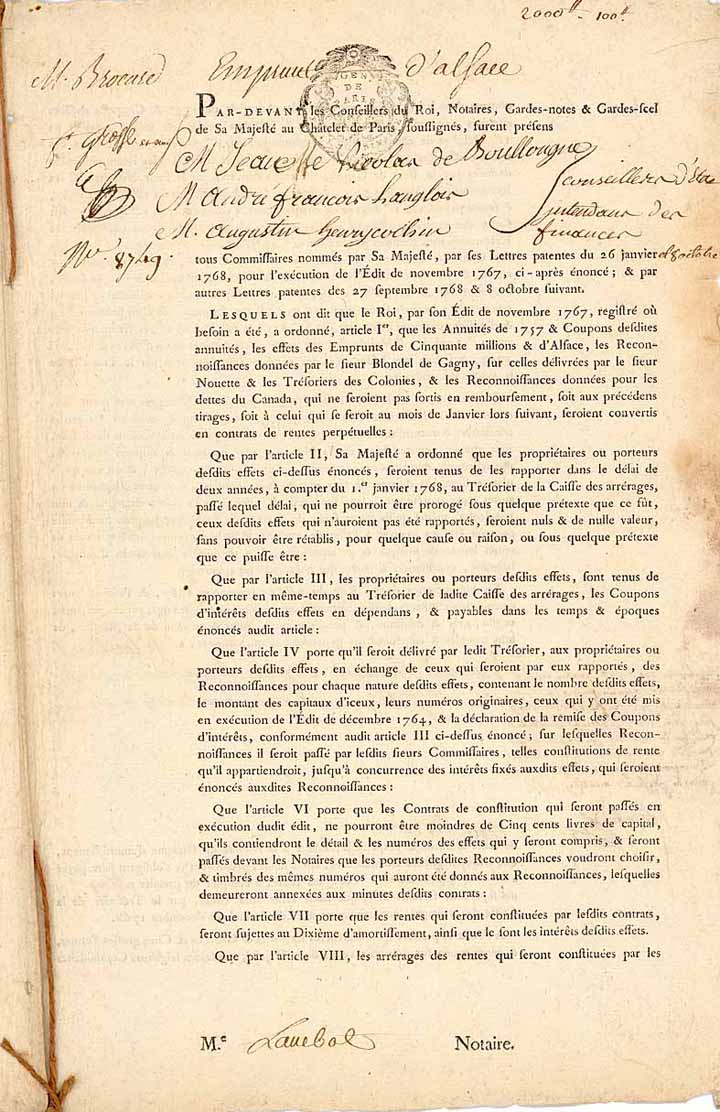 2000ᵗᵗ. 100ᵗᵗ
M. Brocard Emprunt d'alsace
PAR-DEVANT les Conseillers du Roi, Notaires, Gardes-notes & Gardes-scel
de Sa Majesté au Châtelet de Paris, soussignés, furent présens
Grosse
M Jean de Boullongne
M André françois Langlois conseillers d'Etat
M. Augustin henry cochin intendans des
finances
Nᵒ. 8749.
tous Commissaires nommés par Sa Majesté, par ses Lettres patentes du 26 janvier
1768, pour l'exécution de l'Édit de novembre 1767, ci-après énoncé; & par
autres Lettres patentes des 27 septembre 1768 & 8 octobre suivant.
LESQUELS ont dit que le Roi, par son Édit de novembre 1767, registré où
besoin a été, a ordonné, article Iᵉʳ, que les Annuités de 1757 & Coupons desdites
annuités, les effets des Emprunts de Cinquante millions & d'Alsace, les Recon-
noissances données par le sieur Blondel de Gagny, sur celles délivrées par le sieur
Nouette & les Trésoriers des Colonies, & les Reconnoissances données pour les
dettes du Canada, qui ne seroient pas sortis en remboursement, soit aux précédens
tirages, soit à celui qui se seroit au mois de Janvier lors suivant, seroient convertis
en contrats de rentes perpétuelles :
Que par l'article II, Sa Majesté a ordonné que les propriétaires ou porteurs
desdits effets ci-dessus énoncés, seroient tenus de les rapporter dans le délai de
deux années, à compter du 1.ᵉʳ janvier 1768, au Trésorier de la Caisse des arrérages,
passé lequel délai, qui ne pourroit être prorogé sous quelque prétexte que ce fût,
ceux desdits effets qui n'auroient pas été rapportés, seroient nuls & de nulle valeur,
sans pouvoir être rétablis, pour quelque cause ou raison, ou sous quelque prétexte
que ce puisse être :
Que par l'article III, les propriétaires ou porteurs desdits effets, sont tenus de
rapporter en même-temps au Trésorier de ladite Caisse des arrérages, les Coupons
d'intérêts desdits effets en dépendans, & payables dans les temps & époques
énoncés audit article :
Que l'article IV porte qu'il seroit délivré par ledit Trésorier, aux propriétaires ou
porteurs desdits effets, en échange de ceux qui seroient par eux rapportés, des
Reconnoissances pour chaque nature desdits effets, contenant le nombre desdits effets,
le montant des capitaux d'iceux, leurs numéros originaires, ceux qui y ont été mis
en exécution de l'Édit de décembre 1764, & la déclaration de la remise des Coupons
d'intérêts, conformément audit article III ci-dessus énoncé; sur lesquelles Recon-
noissances il seroit passé par lesdits sieurs Commissaires, telles constitutions de rente
qu'il appartiendroit, jusqu'à concurrence des intérêts fixés auxdits effets, qui seroient
énoncés auxdites Reconnoissances :
Que l'article VI porte que les Contrats de constitution qui seront passés en
exécution dudit édit, ne pourront être moindres de Cinq cents livres de capital,
qu'ils contiendront le détail & les numéros des effets qui y seront compris, & seront
passés devant les Notaires que les porteurs desdites Reconnoissances voudront choisir,
& timbrés des mêmes numéros qui auront été donnés aux Reconnoissances, lesquelles
demeureront annexées aux minutes desdits contrats :
Que l'article VII porte que les rentes qui seront constituées par lesdits contrats,
seront sujettes au Dixième d'amortissement, ainsi que le sont les intérêts desdits effets.
Que par l'article VIII, les arrérages des rentes qui seront constituées par les
M.ᵉ Notaire.